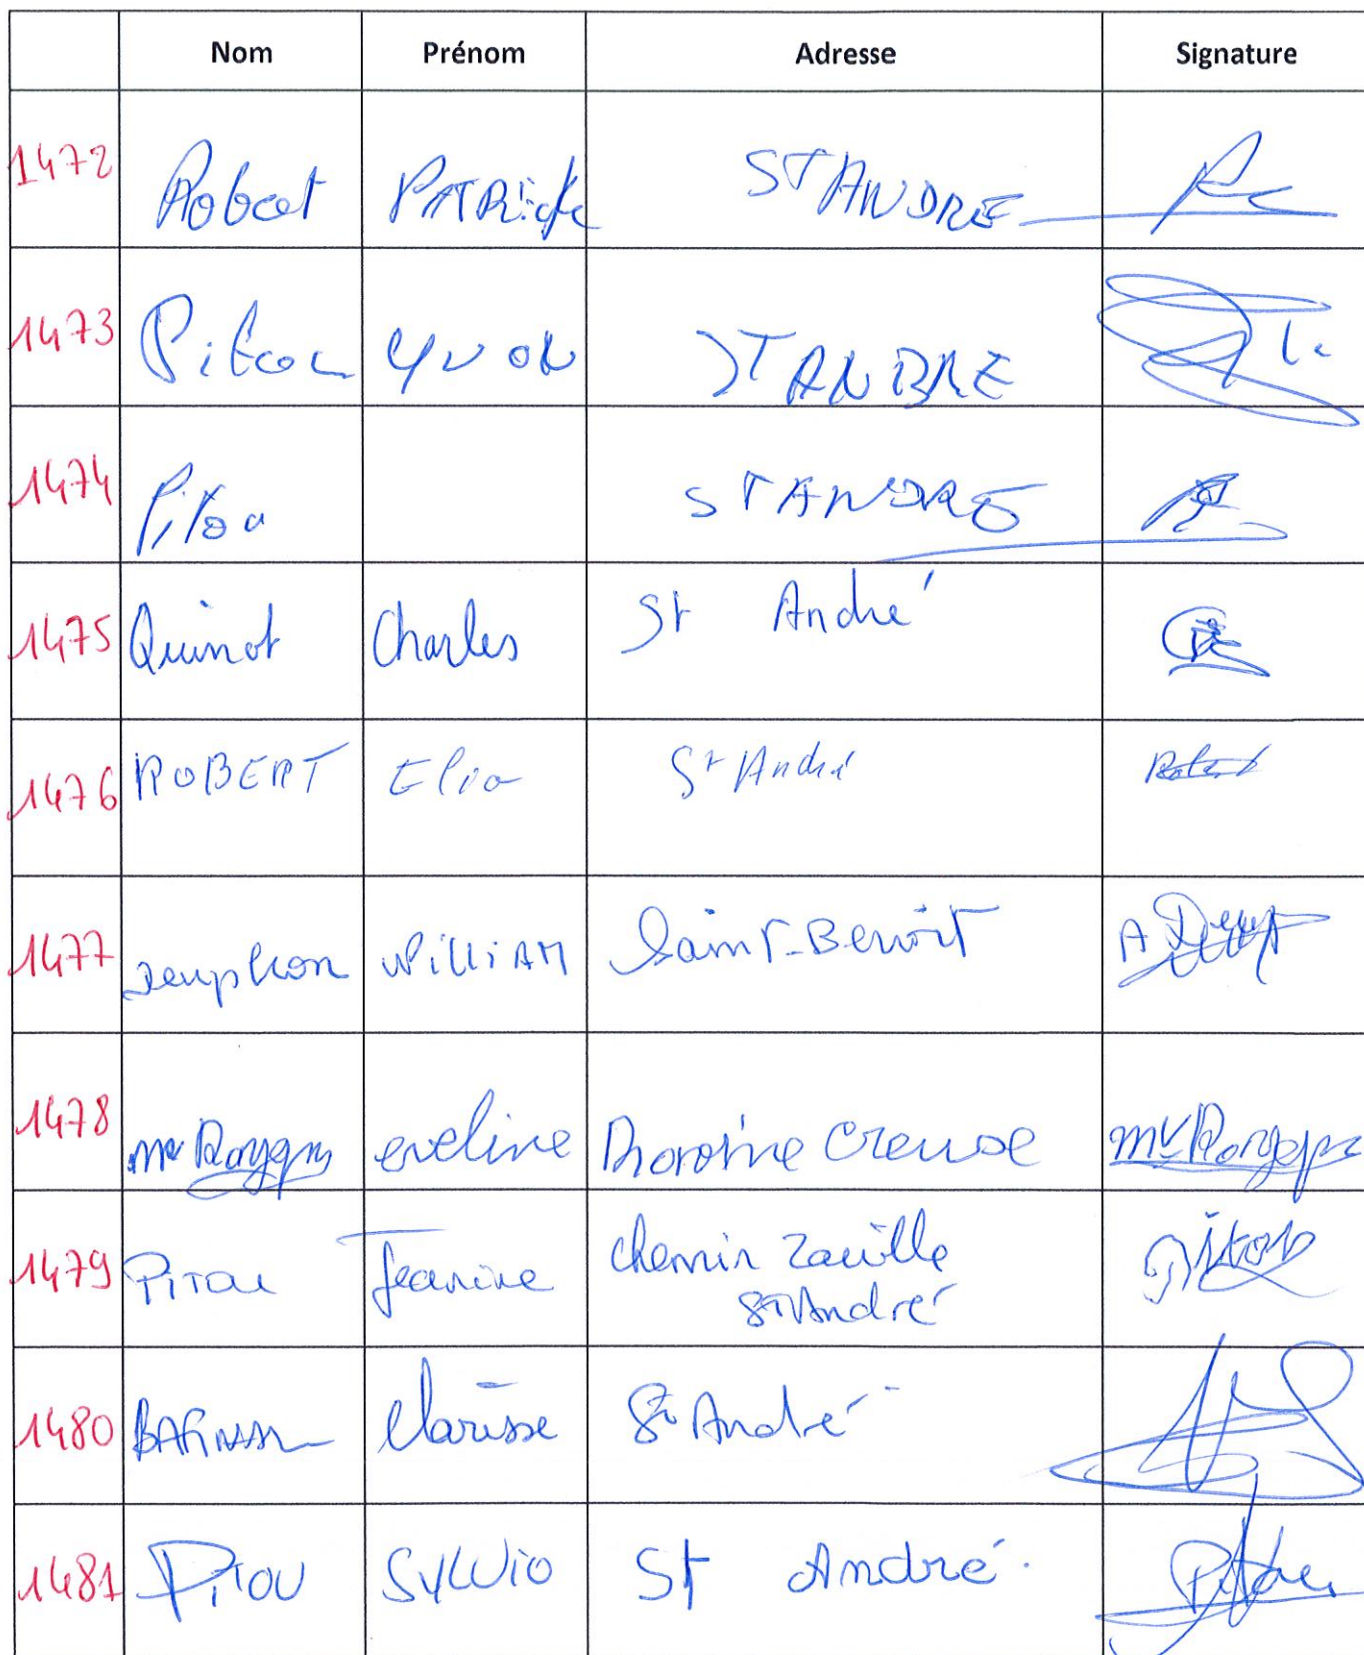 Nom Prénom Adresse Signature
1472 Robert PATRick ST ANDRE
1473 Pitou Yvon ST ANDRE
1474 Pitou ST ANDRE
1475 Quinot Charles St André
1476 ROBERT St André Robert
1477 William Saint-Benoit
1478 eveline Ravine Creuse
1479 PITOU Jeanine chemin
St André
1480 Clarisse St André
1481 PITOU SYLVIO St André.